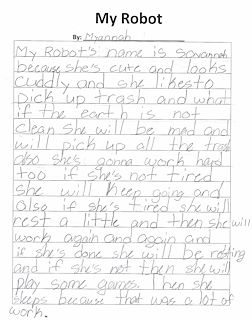 My Robot
By: Myannah
My Robot's name is Savannah
because she's cute and looks
cuddly and she likes to
pick up trash and what
if the earth is not
clean she will be mad and
will pick up all the trash
also she's gonna work hard
too if she's not tired
she will keep going and
also if she's tired she will
rest a little and then she will
work again and again and
if she's done she will be resting
and if she's not then she will
play some games. Then she
sleeps because that was a lot of
work.